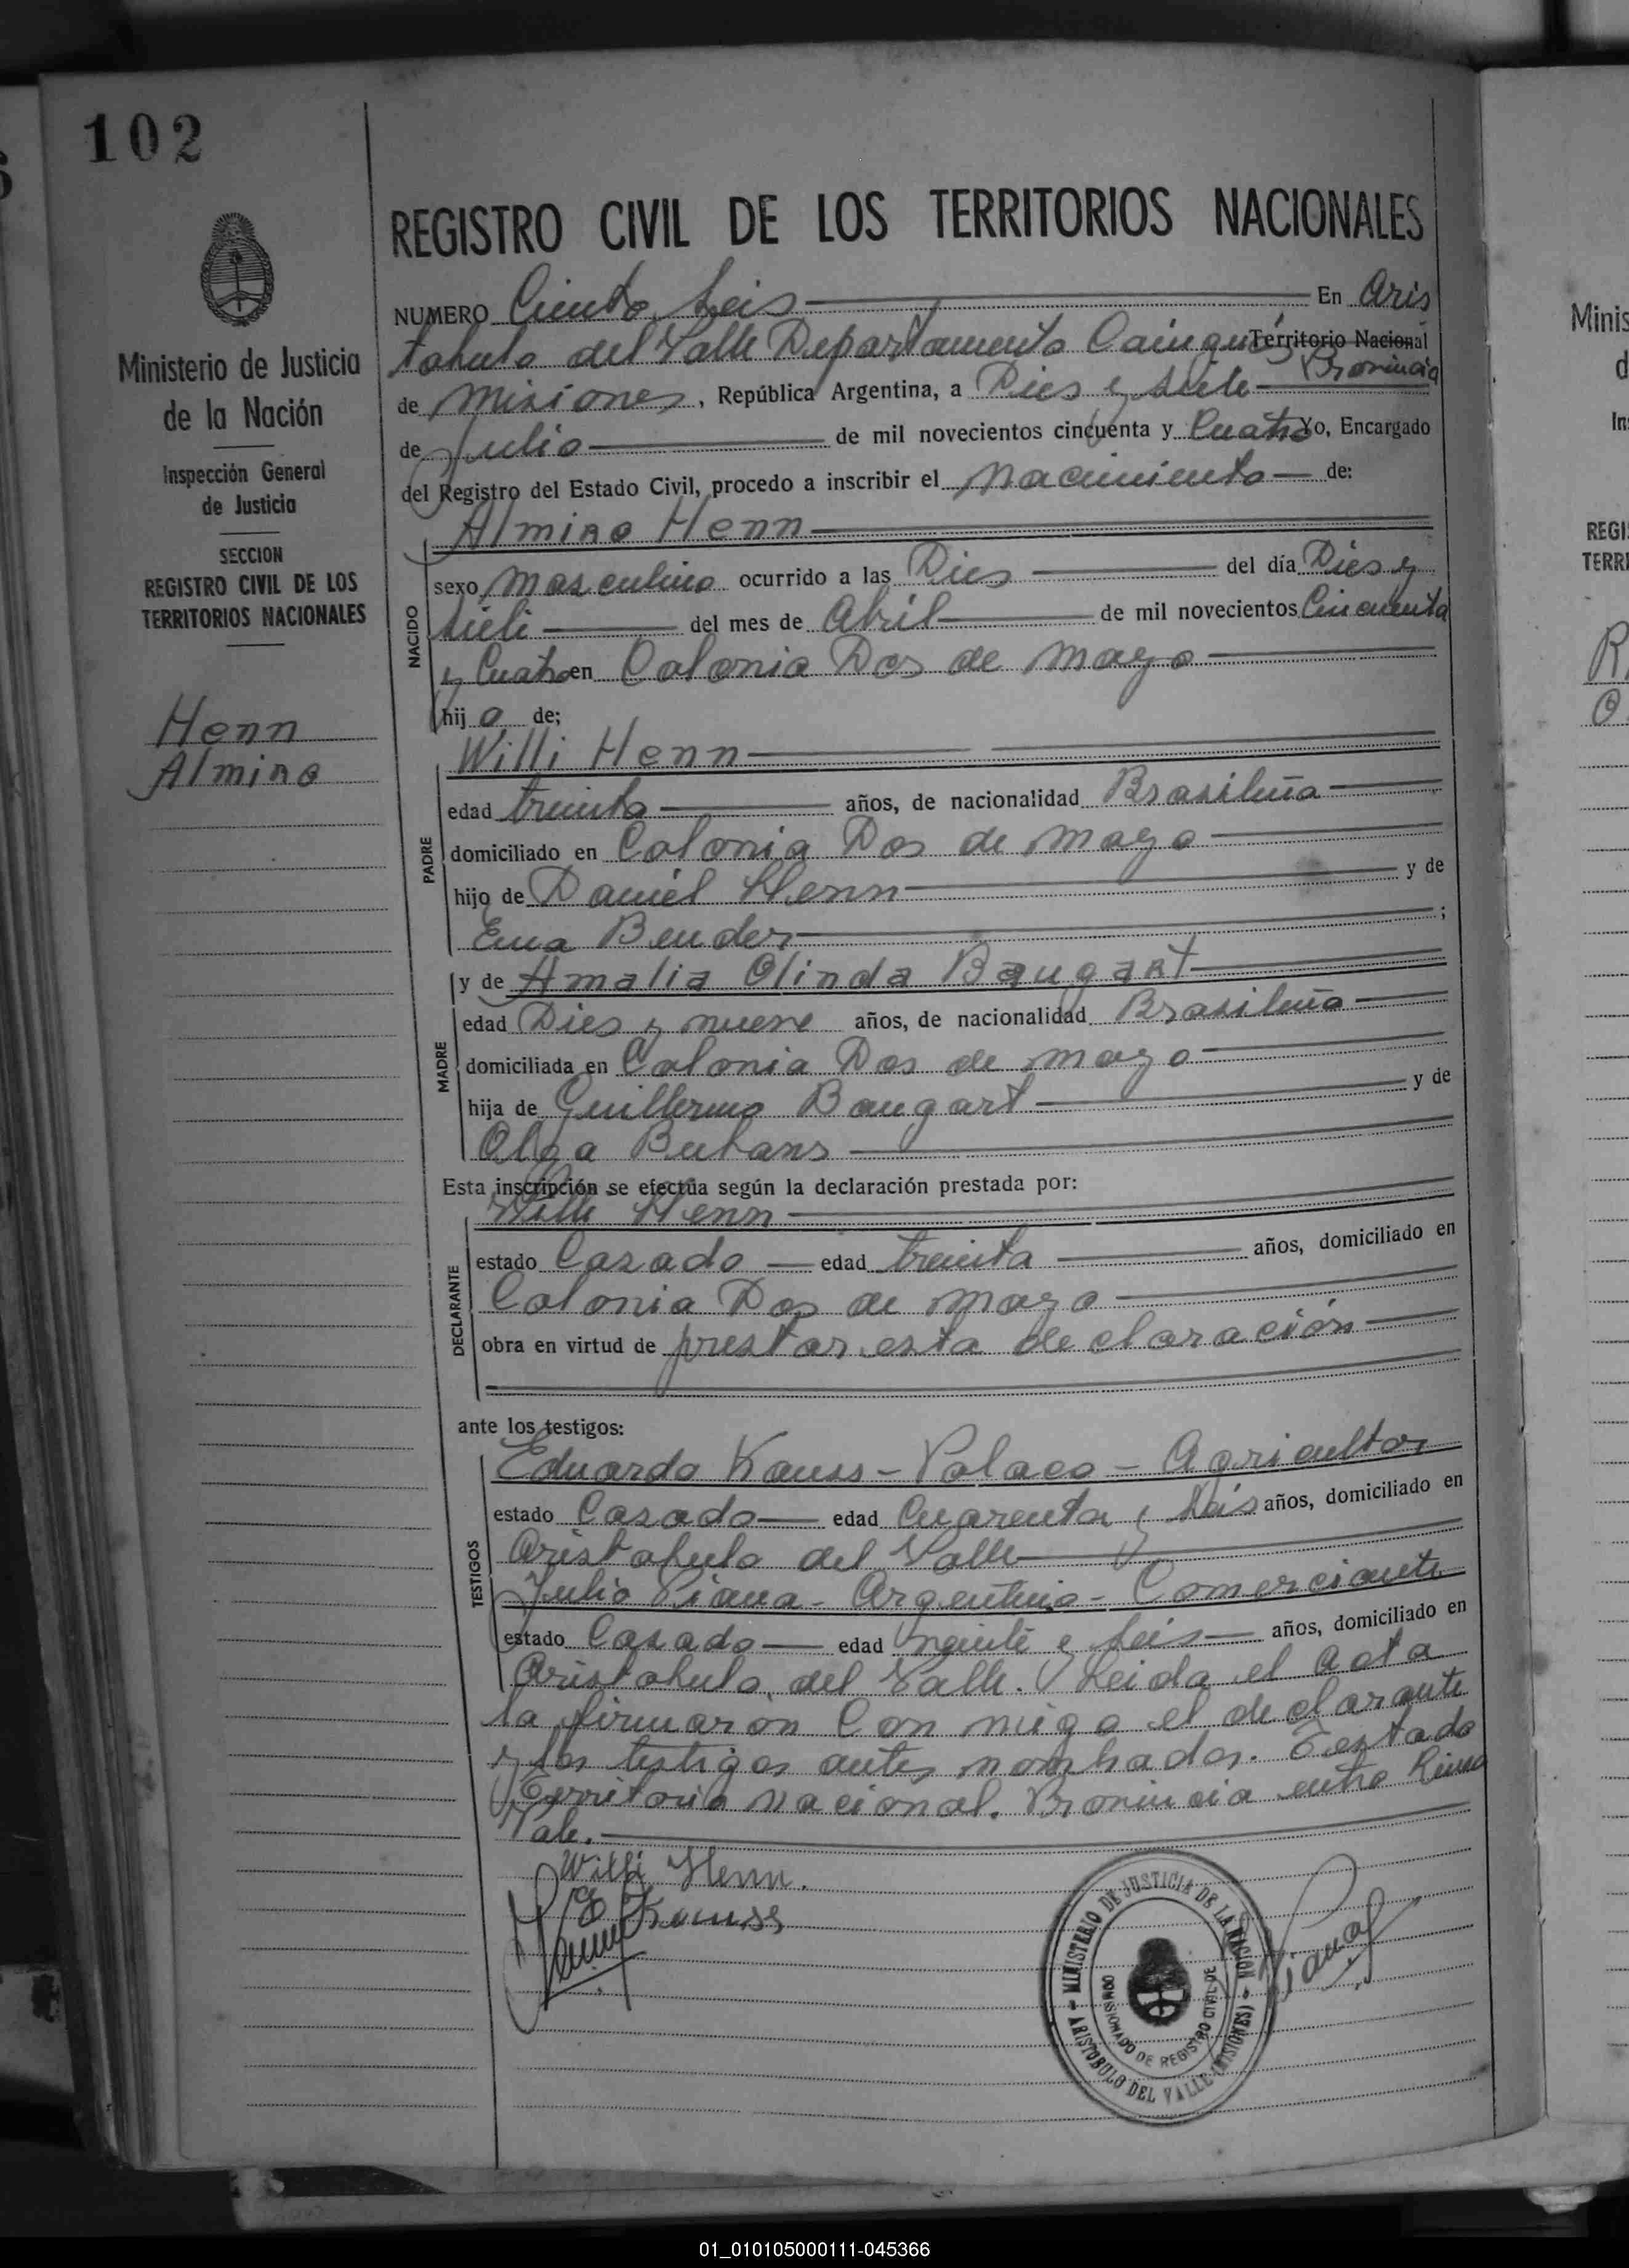 102
REGISTRO CIVIL DE LOS TERRITORIOS NACIONALES
Ministerio de Justicia
de la Nación
Inspección General
de Justicia
SECCION
REGISTRO CIVIL DE LOS
TERRITORIOS NACIONALES
Henn
Almiro
NUMERO Ciento Seis En Aris
tobulo del Valle Departamento Cainguás Territorio Nacional
Provincia
de Misiones, República Argentina, a Dies y siete
de Julio de mil novecientos cincuenta y Cuatro Yo, Encargado
del Registro del Estado Civil, procedo a inscribir el Nacimiento de:
Almiro Henn
NACIDO
sexo Masculino ocurrido a las Dies del día Dies y
siete del mes de Abril de mil novecientos Cincuenta
y Cuatro en Colonia Dos de Mayo
hijo de;
Willi Henn
PADRE
edad treinta años, de nacionalidad Brasileña
domiciliado en Colonia Dos de Mayo
hijo de Daniel Henn y de
Ema Bender ;
y de Amalia Olinda Baugart
MADRE
edad Dies y nueve años, de nacionalidad Brasileña
domiciliada en Colonia Dos de Mayo
hija de Guillermo Baugart y de
Olga
Esta inscripción se efectúa según la declaración prestada por:
Willi Henn
DECLARANTE
estado Casado edad treinta años, domiciliado en
Colonia Dos de Mayo
obra en virtud de prestar esta declaración
ante los testigos:
TESTIGOS
Eduardo Kauss - Polaco - Agricultor
estado Casado edad Cuarenta y Seis años, domiciliado en
Aristobulo del Valle
Julio Piana - Argentino - Comerciante
estado Casado edad veinte y seis años, domiciliado en
Aristobulo del Valle. Leida el acta
la firmaron Con migo el declarante
y los testigos antes nombrados. Testado
Territorio nacional. Provincia entre linea
Vale.
Willi Henn.
MINISTERIO DE JUSTICIA DE LA NACION - ARISTOBULO DEL VALLE (MISIONES) -
COMISIONADO DE REGISTRO CIVIL DE
Minis
d
In
REGI
TERRI
01_010105000111-045366